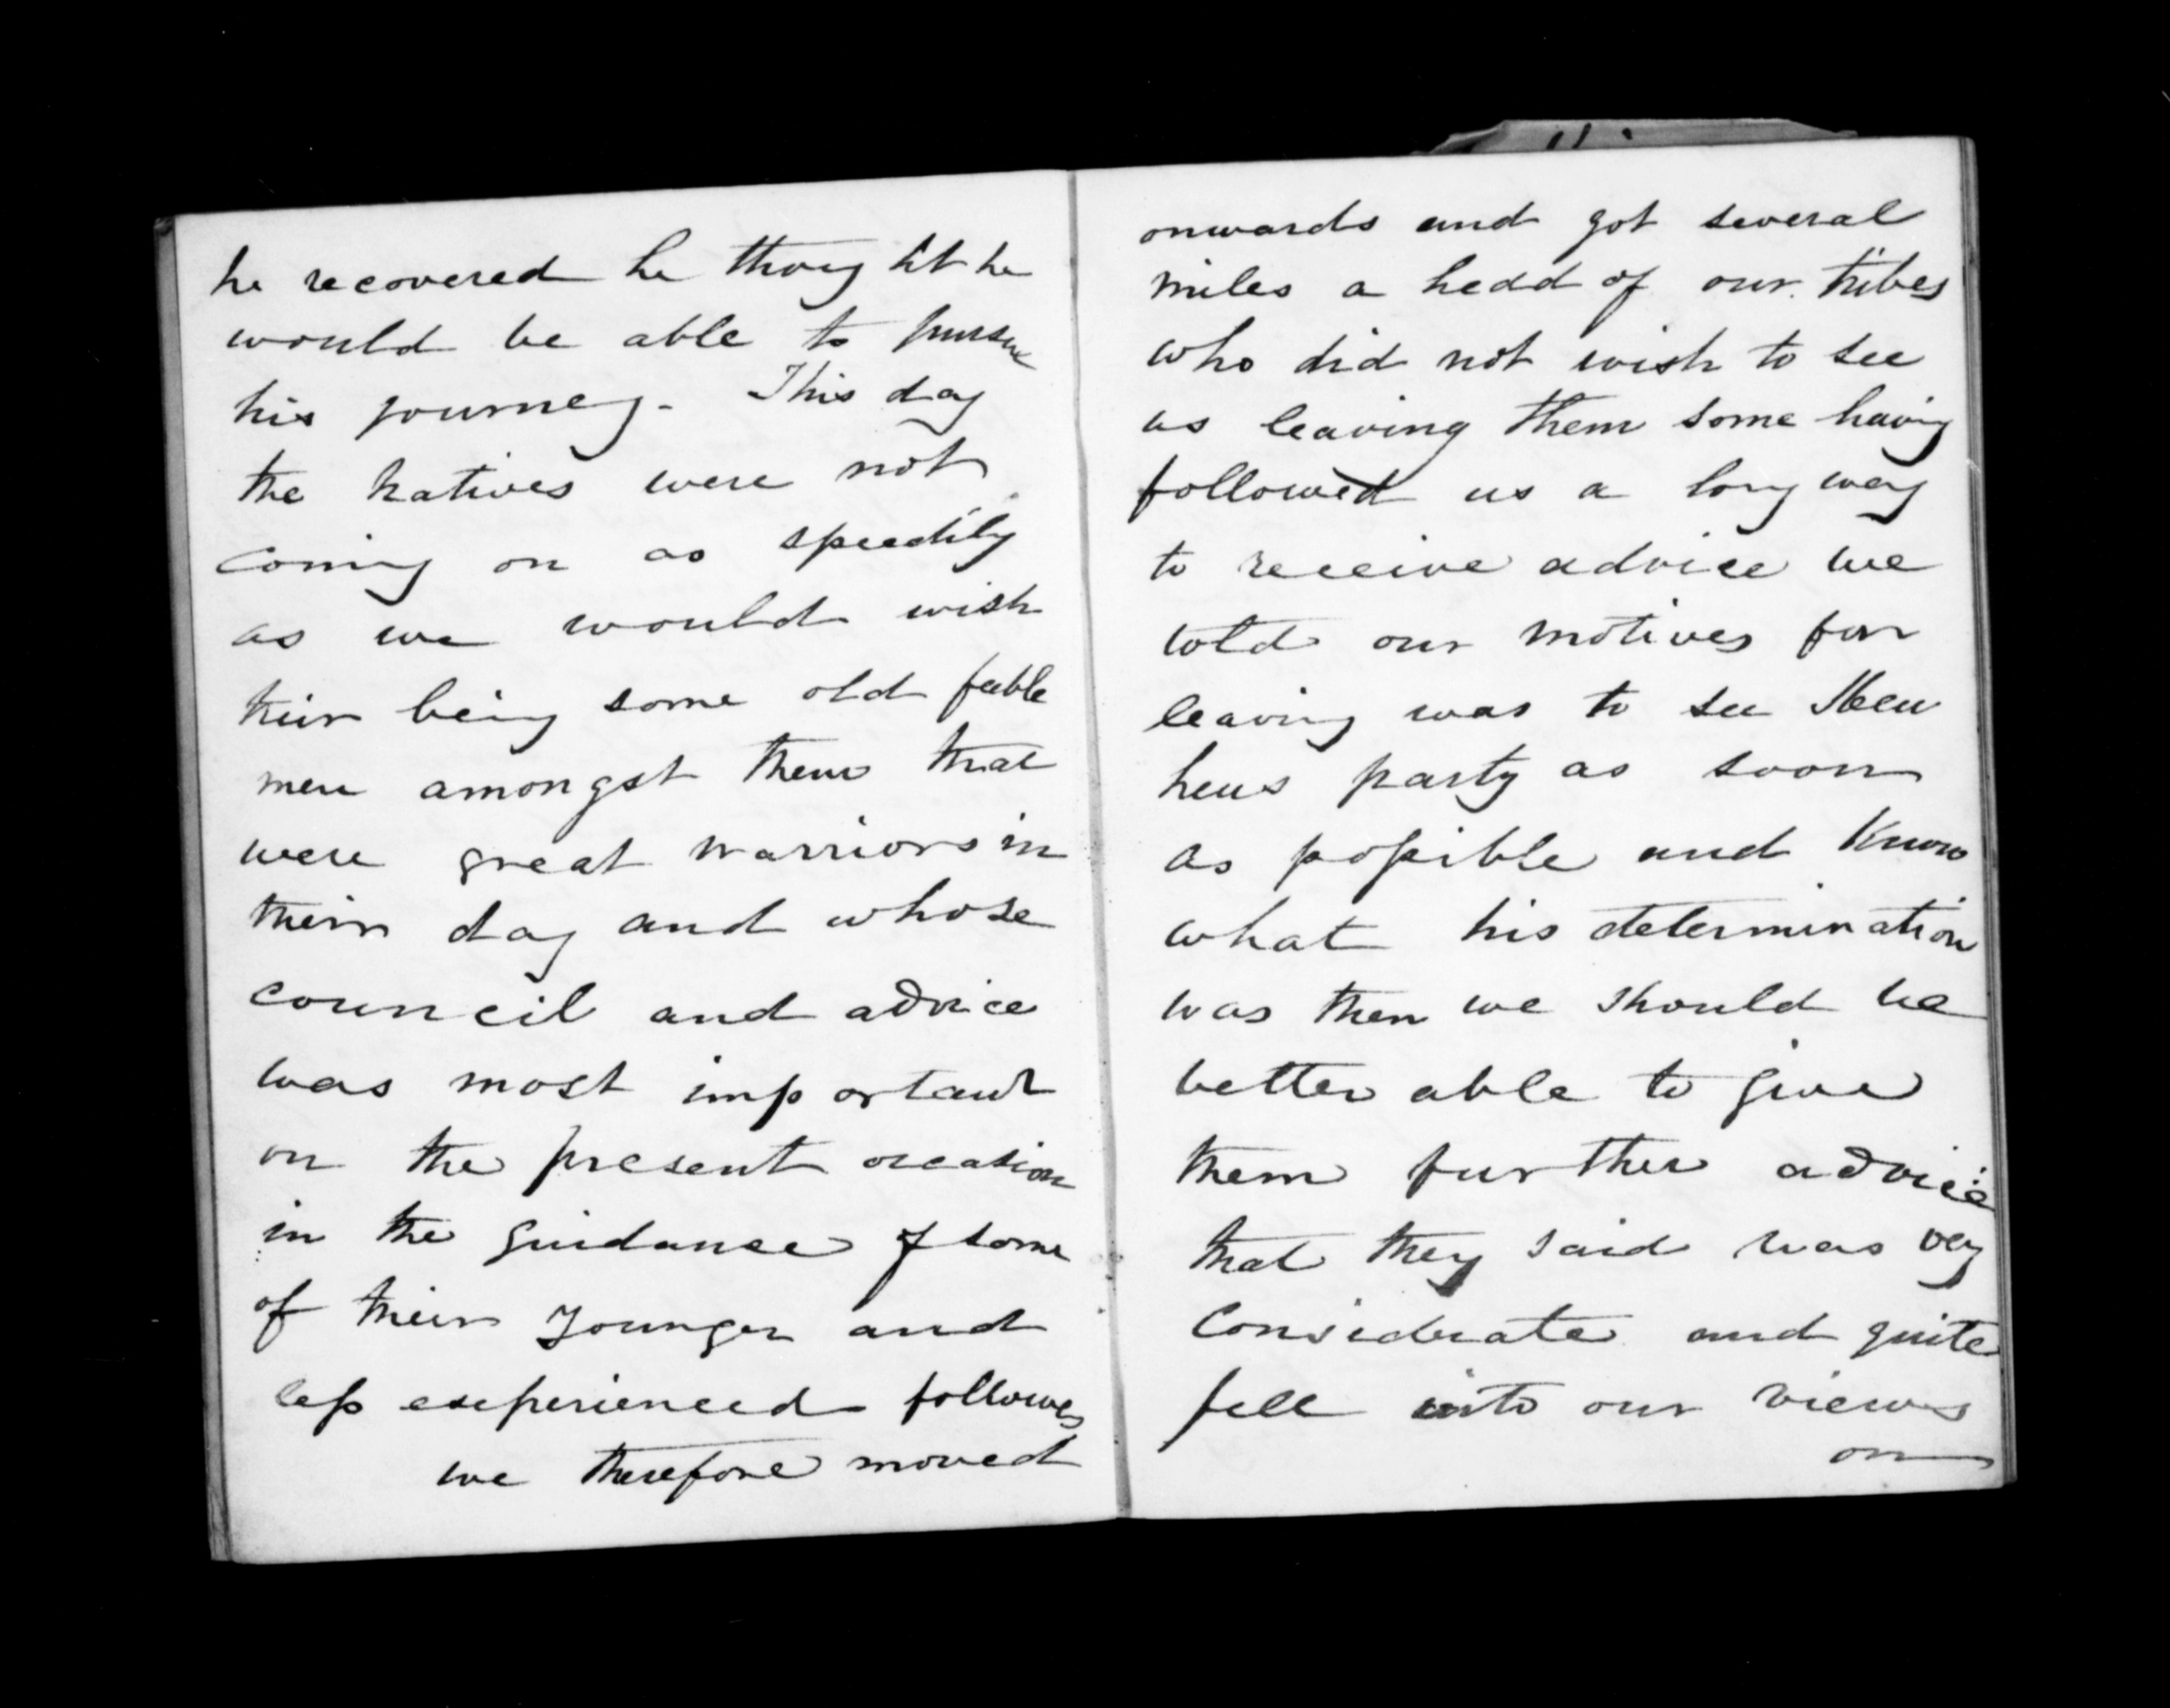 he recovered he thought he
would be able to pursue
his journey. This day
the Natives were not
coming on as speedily
as we would wish
their being some old feeble
men amongst them that
were great warriors in
their day and whose
council and advice
was most important
on the present occasion
in the guidance of some
of their younger and
less experienced followers
we therefore moved
onwards and got several
miles a head of our tribes
who did not wish to see
us leaving them some having
followed us a long way
to receive advice we
told our motives for
leaving was to see Heu
heus party as soon
as possible and know
what his determination
was then we should be
better able to give
them further advice
that they said was very
considerate and quite
fell into our views
on